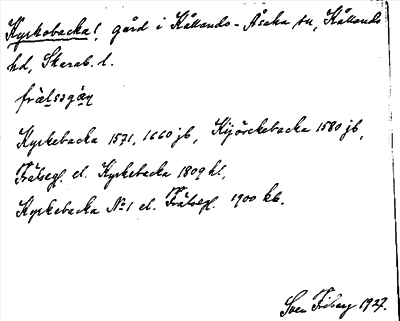 Kyrkobacka!, gård i Kållands-Åsaka sn, Kållands
hd, Skarab. l.
frälssgån
Kyrkebacka 1571, 1660 jb, Kijörckebacka 1580 jb,
Frälsegl. el. Kyrkebacka 1809 hl,
Kyrkebacka No 1 el. Frälsegl. 1900 kb.
Sven Friberg 1927.